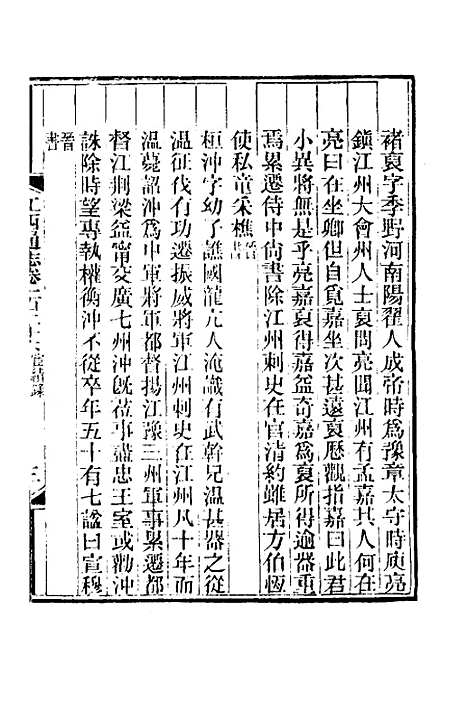 褚裒字季野河南陽翟人成帝時爲豫章太守時庾亮
鎮江州大會州人士裒問亮聞江州有孟嘉其人何在
亮曰在坐卿但自覓嘉坐次甚遠裒歷觀指嘉曰此君
小異將無是乎亮嘉裒得嘉益奇嘉爲裒所得逾器重
焉累遷侍中尙書除江州刺史在官清約雖居方伯恆
使私童采樵晉書
桓沖字幼子譙國龍亢人淹識有武幹兄温甚器之從
温征伐有功遷振威將軍江州刺史在江州凡十年而
温薨詔沖爲中軍將軍都督揚江豫三州軍事累遷都
督江荆梁益甯交廣七州沖旣莅事盡忠王室或勸沖
誅除時望專執權衡沖不從卒年五十有七諡曰宣穆
晉書
江西通志卷 宦績錄